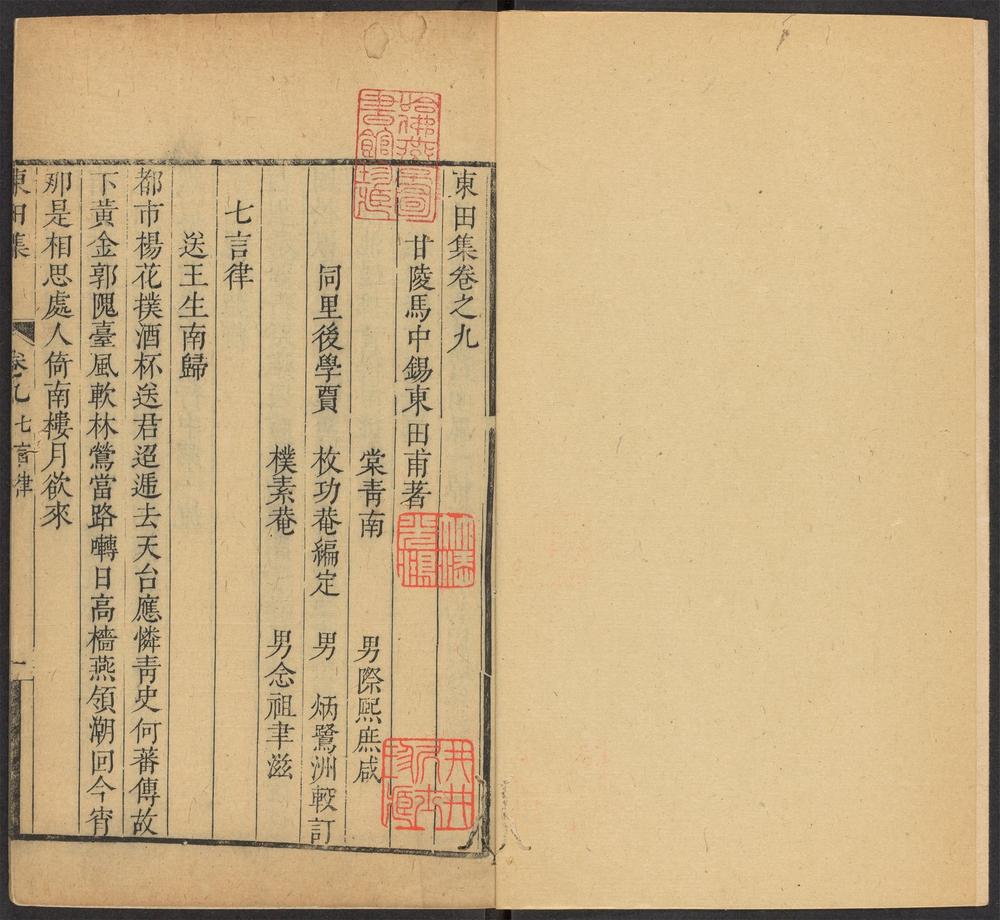 東田集卷之九
甘陵馬中錫東田甫著
棠青南　男際熙庶咸
同里後學賈　枚功菴編定　男　炳鷺洲較訂
樸素菴　男念祖聿滋
七言律
送王生南歸
都市楊花撲酒杯送君迢遞去天台應憐青史何蕃傳故
下黃金郭隗臺風軟林鶯當路囀日高檣燕領潮回今宵
那是相思處人倚南樓月欲來
東田集　卷九　七言律　一
哈佛燕京圖書館珍藏